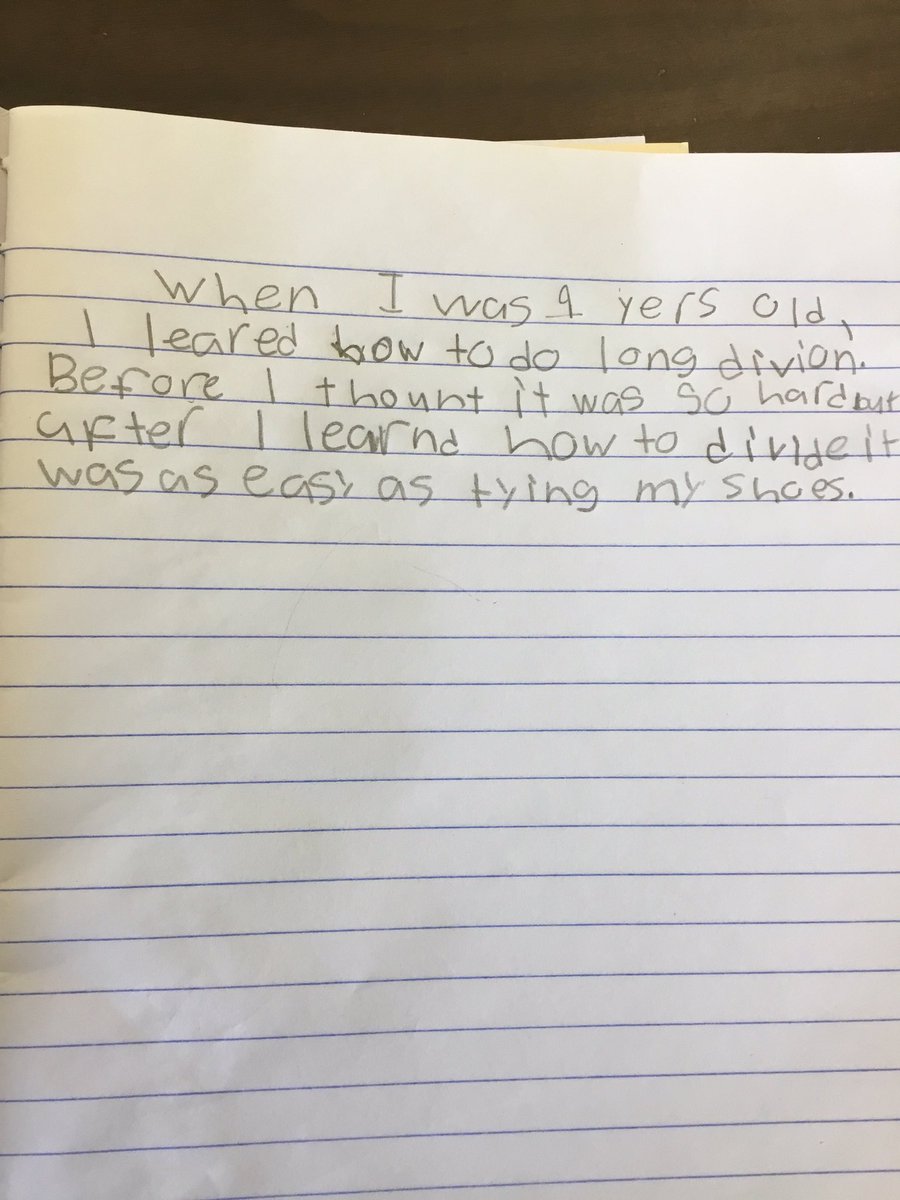 When I was 9 yers old,
I leared how to do long divion.
Before I thount it was so hard but
after I learnd how to divide it
was as easy as tying my shoes.